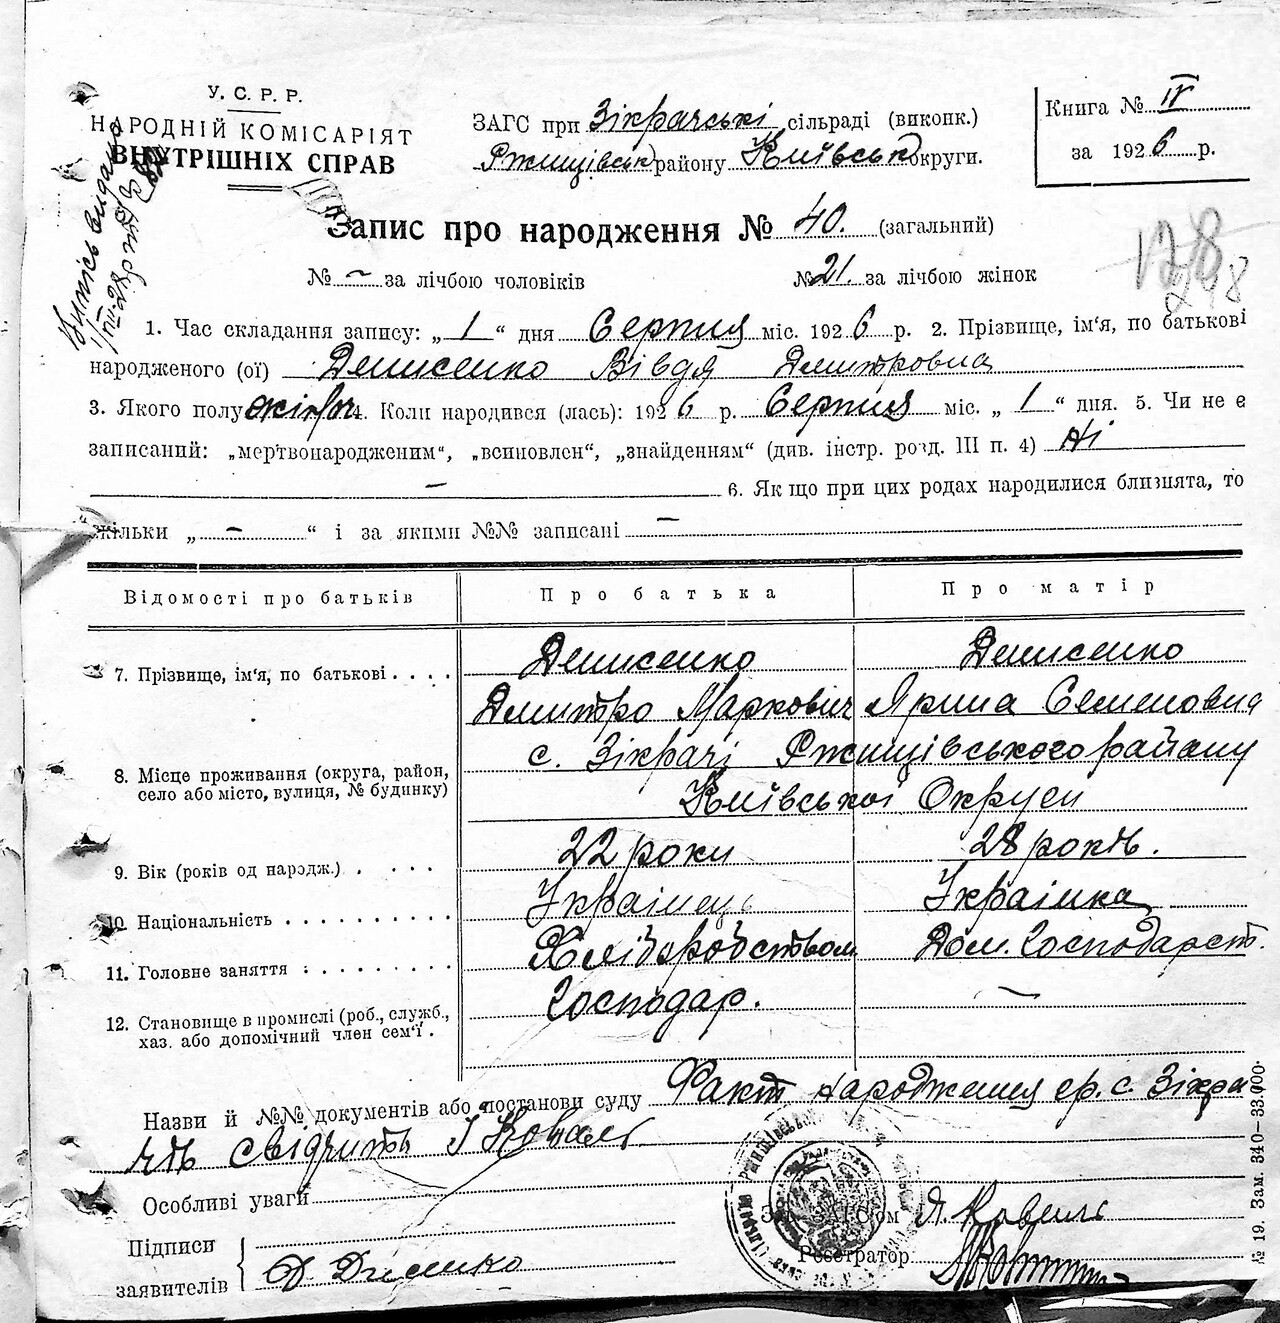 У. С. Р. Р.
НАРОДНІЙ КОМІСАРІЯТ
ВНУТРІШНІХ СПРАВ
ЗАГС при Зікрачські сільраді (виконк.)
Ржищівськ району Київськ округи.
Книга № IV
за 1926 р.
Запис про народження № 40. (загальний)
№ – за лічбою чоловіків № 21. за лічбою жінок
1. Час складання запису: „ 1 “ дня Серпня міс. 1926 р. 2. Прізвище, ім'я, по батькові
народженого (ої) Денисенко Вівдя Дмитровна
3. Якого полу жіноч 4. Коли народився (лась): 1926 р. Серпня міс. „ 1 “ дня. 5. Чи не є
записаний: „мертвонародженим“, „всиновлен“, „знайденням“ (див. інстр. розд. III п. 4) Ні
– 6. Як що при цих родах народилися близнята, то
скільки „ – “ і за якими №№ записані –
Відомості про батьків Про батька Про матір
7. Прізвище, ім'я, по батькові . . . . Денисенко Денисенко
Дмитро Маркович Ярина Семеновна
8. Місце проживання (округа, район, село або місто, вулиця, № будинку) с. Зікрачі Ржищівського району
Київської Округи
9. Вік (років од народж.) . . . . . 22 роки 28 років.
10. Національність . . . . . . . . . . Українець Українка
11. Головне заняття . . . . . . . . . Хліборобством Дом. Господарст.
12. Становище в промислі (роб., служб., хаз. або допомічний член сем'ї . Господар. –
Назви й №№ документів або постанови суду Факт народження гр. с. Зікра
чів свідчить І Коваль
Особливі уваги
Підписи
заявителів
Зав. ЗАГС'ом Я. Коваль
Реєстратор
№ 19. Зам. 340—33.000.